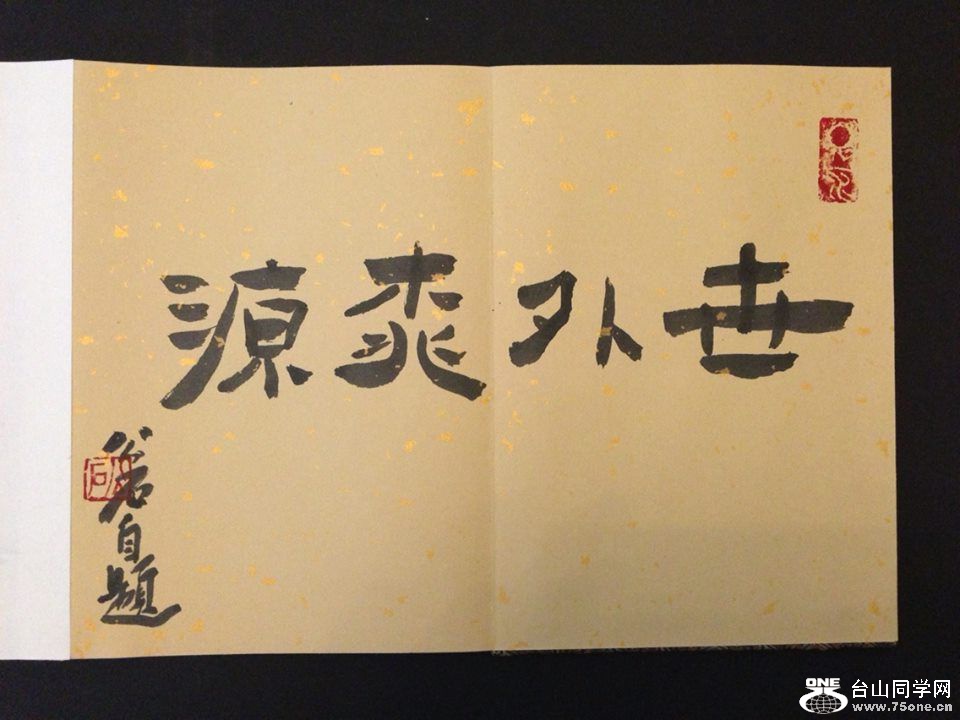 世外桃源
自題
ONE
台山同学网
www.75one.cn